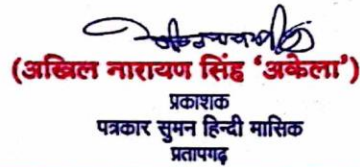 (अखिल नारायण सिंह ‘अकेला’)
प्रकाशक
पत्रकार सुमन हिन्दी मासिक
प्रतापगढ़